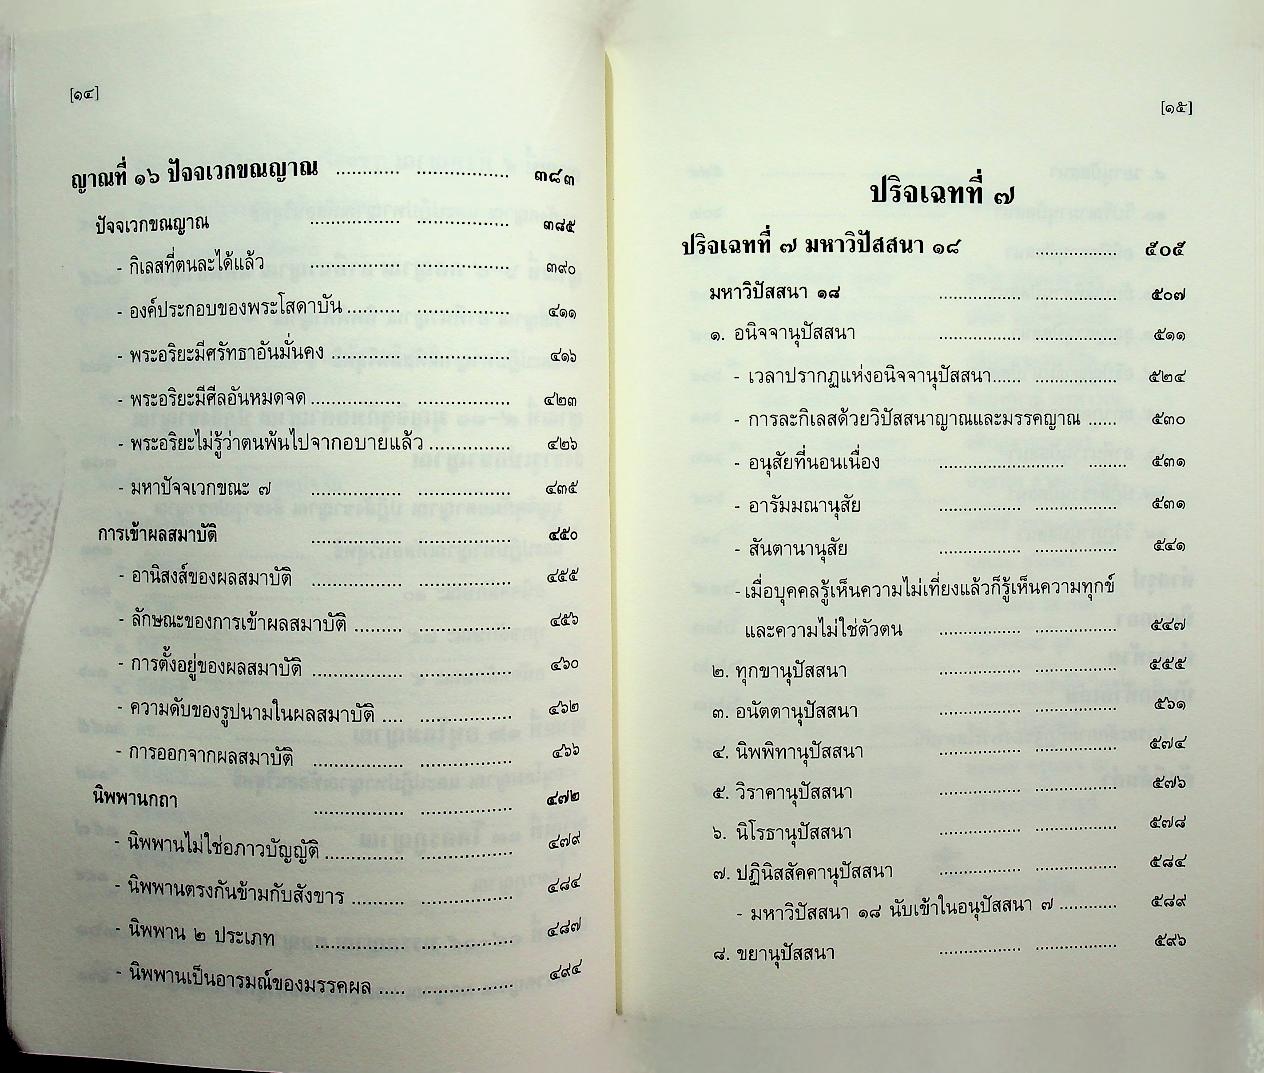 [๑๔]
ญาณที่ ๑๖ ปัจจเวกขณญาณ ............ ................. ๓๘๓
ปัจจเวกขณญาณ ................. ................. ๓๘๕
- กิเลสที่ตนละได้แล้ว ................. ................. ๓๙๐
- องค์ประกอบของพระโสดาบัน .......... ................. ๔๑๑
- พระอริยะมีศรัทธาอันมั่นคง ............. ................. ๔๑๖
- พระอริยะมีศีลอันหมดจด ................ ................. ๔๒๓
- พระอริยะไม่รู้ว่าตนพ้นไปจากอบายแล้ว ............... ๔๒๖
- มหาปัจจเวกขณะ ๗ ................. ................. ๔๓๕
การเข้าผลสมาบัติ ................. ................. ๔๕๐
- อานิสงส์ของผลสมาบัติ ................. ................. ๔๕๕
- ลักษณะของการเข้าผลสมาบัติ ......... ................. ๔๕๖
- การตั้งอยู่ของผลสมาบัติ ................. ................. ๔๖๐
- ความดับของรูปนามในผลสมาบัติ .... ................. ๔๖๒
- การออกจากผลสมาบัติ ................. ................. ๔๖๖
นิพพานกถา ................. ................. ๔๗๒
- นิพพานไม่ใช่อภาวบัญญัติ ............... ................. ๔๗๙
- นิพพานตรงกันข้ามกับสังขาร ......... ................. ๔๘๔
- นิพพาน ๒ ประเภท ................. ................. ๔๘๗
- นิพพานเป็นอารมณ์ของมรรคผล ..... ................. ๔๙๔
[๑๕]
ปริจเฉทที่ ๗
ปริจเฉทที่ ๗ มหาวิปัสสนา ๑๘ ............... ๕๐๕
มหาวิปัสสนา ๑๘ ............... ............... ๕๐๗
๑. อนิจจานุปัสสนา ............... ............... ๕๑๑
- เวลาปรากฏแห่งอนิจจานุปัสสนา...... ............... ๕๒๔
- การละกิเลสด้วยวิปัสสนาญาณและมรรคญาณ ...... ๕๓๐
- อนุสัยที่นอนเนื่อง ....................... ........ ๕๓๑
- อารัมมณานุสัย ............... ............... ๕๓๑
- สันตานานุสัย ............... ............... ๕๔๑
- เมื่อบุคคลรู้เห็นความไม่เที่ยงแล้วก็รู้เห็นความทุกข์
และความไม่ใช่ตัวตน ............... ............... ๕๔๗
๒. ทุกขานุปัสสนา ............... ............... ๕๕๕
๓. อนัตตานุปัสสนา ............... ............... ๕๖๑
๔. นิพพิทานุปัสสนา ............... ............... ๕๗๔
๕. วิราคานุปัสสนา ............... ............... ๕๗๖
๖. นิโรธานุปัสสนา ............... ............... ๕๗๘
๗. ปฏินิสสัคคานุปัสสนา ............... ............... ๕๘๔
- มหาวิปัสสนา ๑๘ นับเข้าในอนุปัสสนา ๗ ........... ๕๘๙
๘. ขยานุปัสสนา ............... ............... ๕๙๖